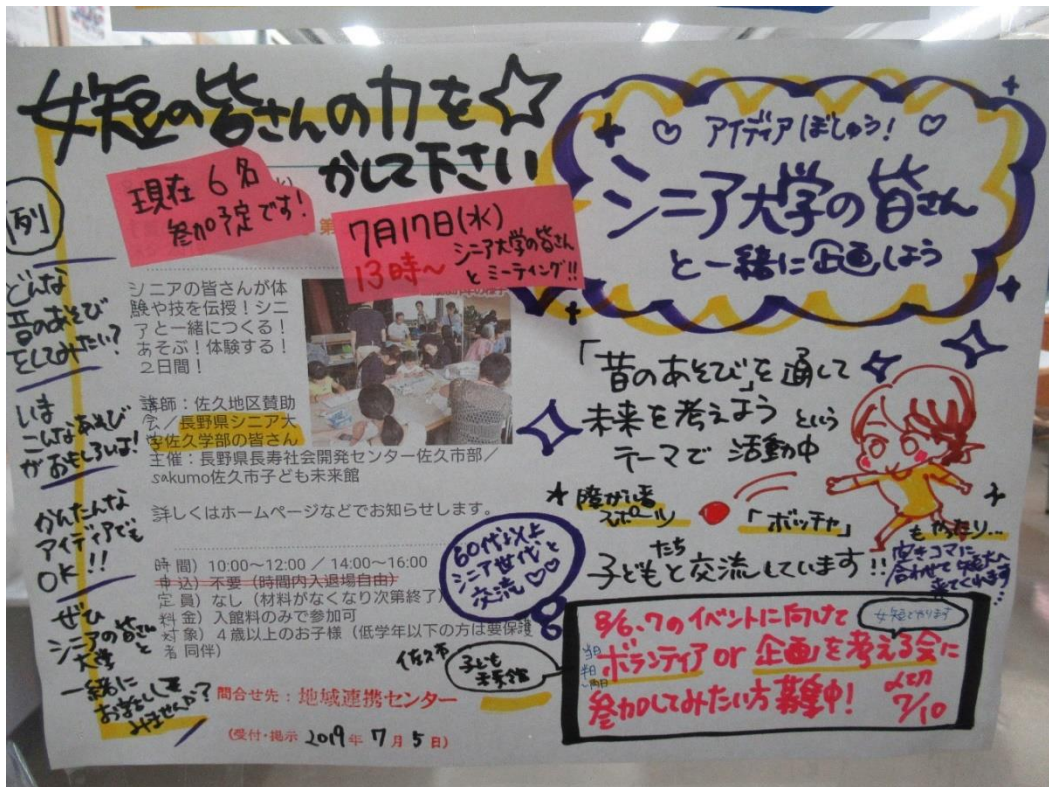 女短の皆さんの力を☆
かして下さい
現在 6名
参加予定です!
7月17日(水)
13時~
シニア大学の皆さん
とミーティング!!
第
例
どんな
昔のあそび
をしてみたい?
いま
こんなあそび
がおもしろいよ!
かんたんな
アイディアでも
OK!!
ぜひ
シニアの皆さんと
大学
一緒に
お話しして
みませんか?
シニアの皆さんが体
験や技を伝授!シニ
アと一緒につくる!
あそぶ!体験する!
2日間!
講師:佐久地区賛助
会/長野県シニア大
学佐久学部の皆さん
主催:長野県長寿社会開発センター佐久市部/
sakumo佐久市子ども未来館
詳しくはホームページなどでお知らせします。
時間)10:00~12:00 / 14:00~16:00
申込)不要(時間内入退場自由)
定員)なし(材料がなくなり次第終了)
料金)入館料のみで参加可
対象)4歳以上のお子様(低学年以下の方は要保護
者同伴)
問合せ先:地域連携センター
(受付・掲示 2019年 7月 5日)
♡ アイディアぼしゅう! ♡
シニア大学の皆さん
と一緒に企画しよう
「昔のあそび」を通して
未来を考えよう という
テーマで 活動中
★障がい者
スポーツ
「ボッチャ」
もやったり…
子どもたちと交流しています!!
空きコマに
合わせて短大へ
来てくれます…
60代以上
シニア世代と
交流♡♡
佐久市
子ども
未来館
8/6、7のイベントに向けて
女短でやります
当日
ボランティア or 企画を考える会に
参加してみたい方募集中!
〆切
7/10